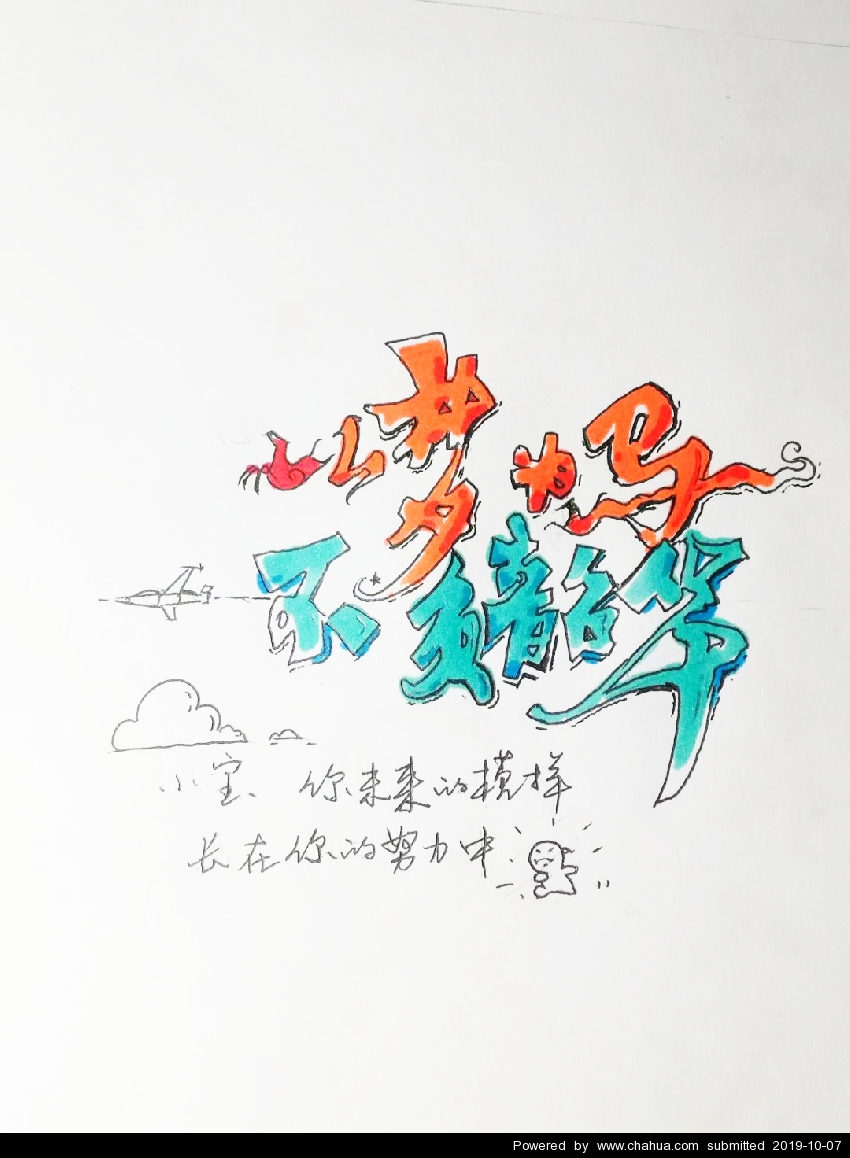 以梦为马
不负韶华
小宝、你未来的模样
长在你的努力中!
Powered by www.chahua.com submitted 2019-10-07